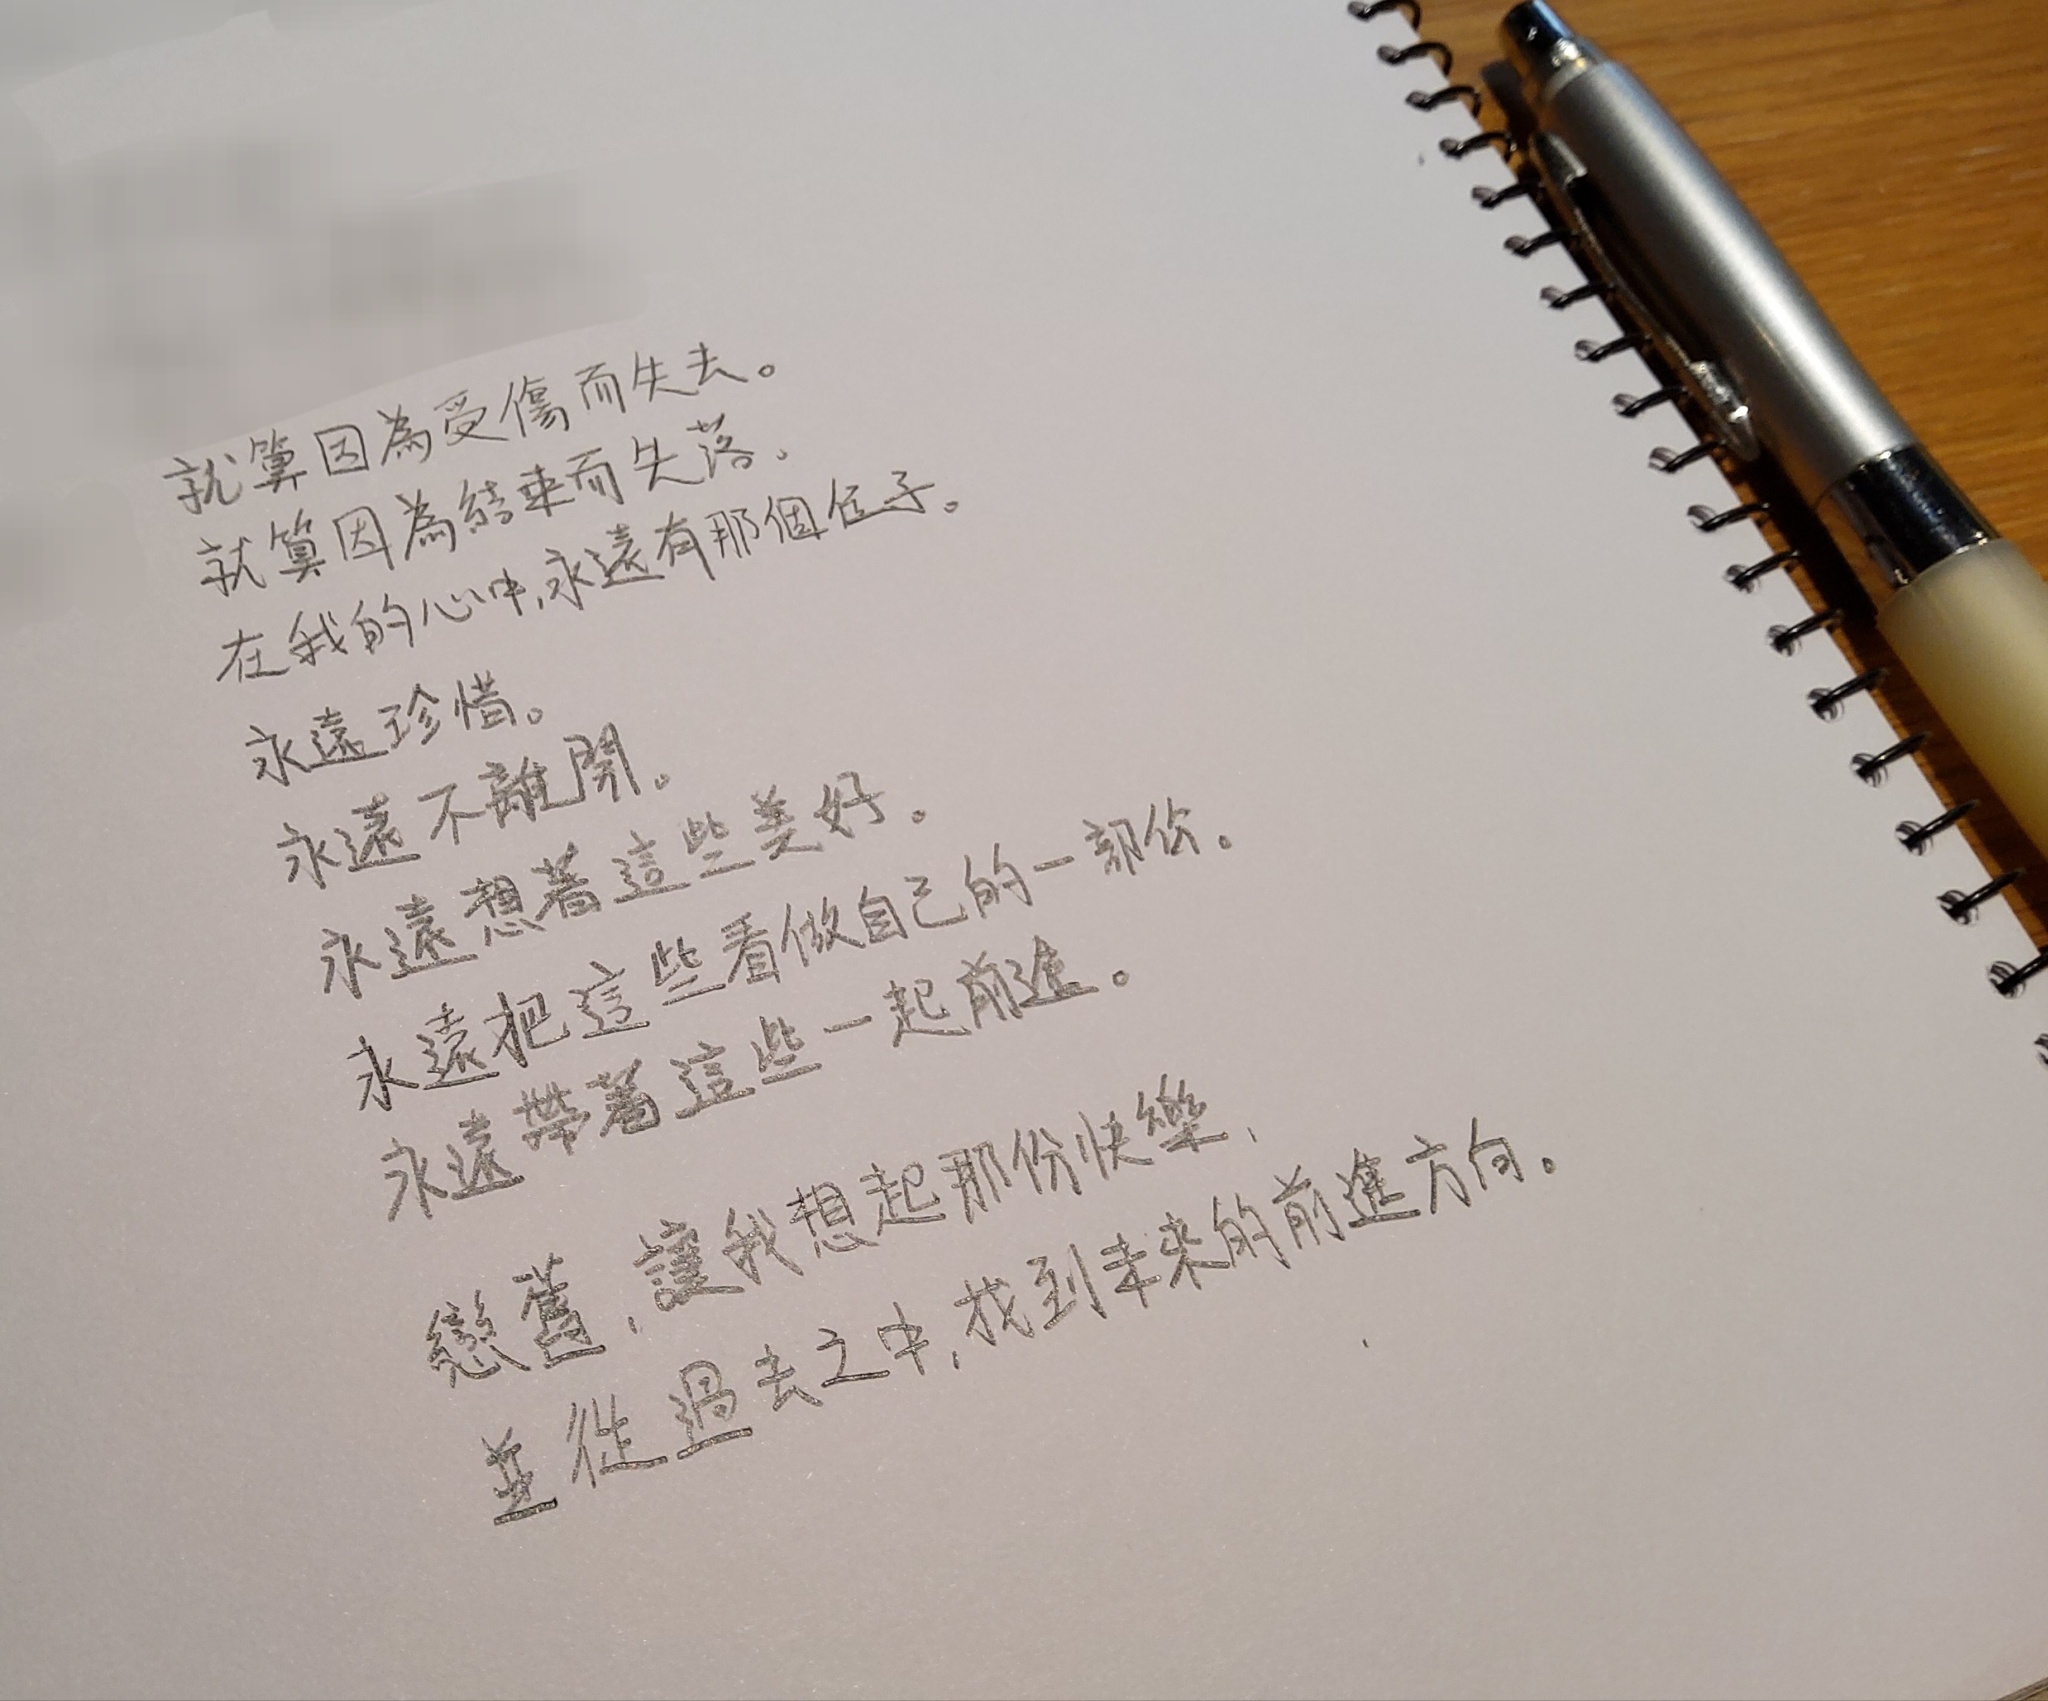 就算因為受傷而失去。
就算因為結束而失落,
在我的心中,永遠有那個位子。
永遠珍惜。
永遠不離開。
永遠想著這些美好。
永遠把這些看做自己的一部份。
永遠帶著這些一起前進。
戀舊,讓我想起那份快樂,
並從過去之中,找到未來的前進方向。